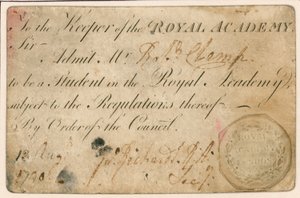 To the Keeper of the ROYAL ACADEMY.
Sir
Admit Mr
to be a Student in the Royal Academy
subject to the Regulations thereof
By Order of the Council.
Jn. Richards R.A.
Secy.
1790
ROYAL